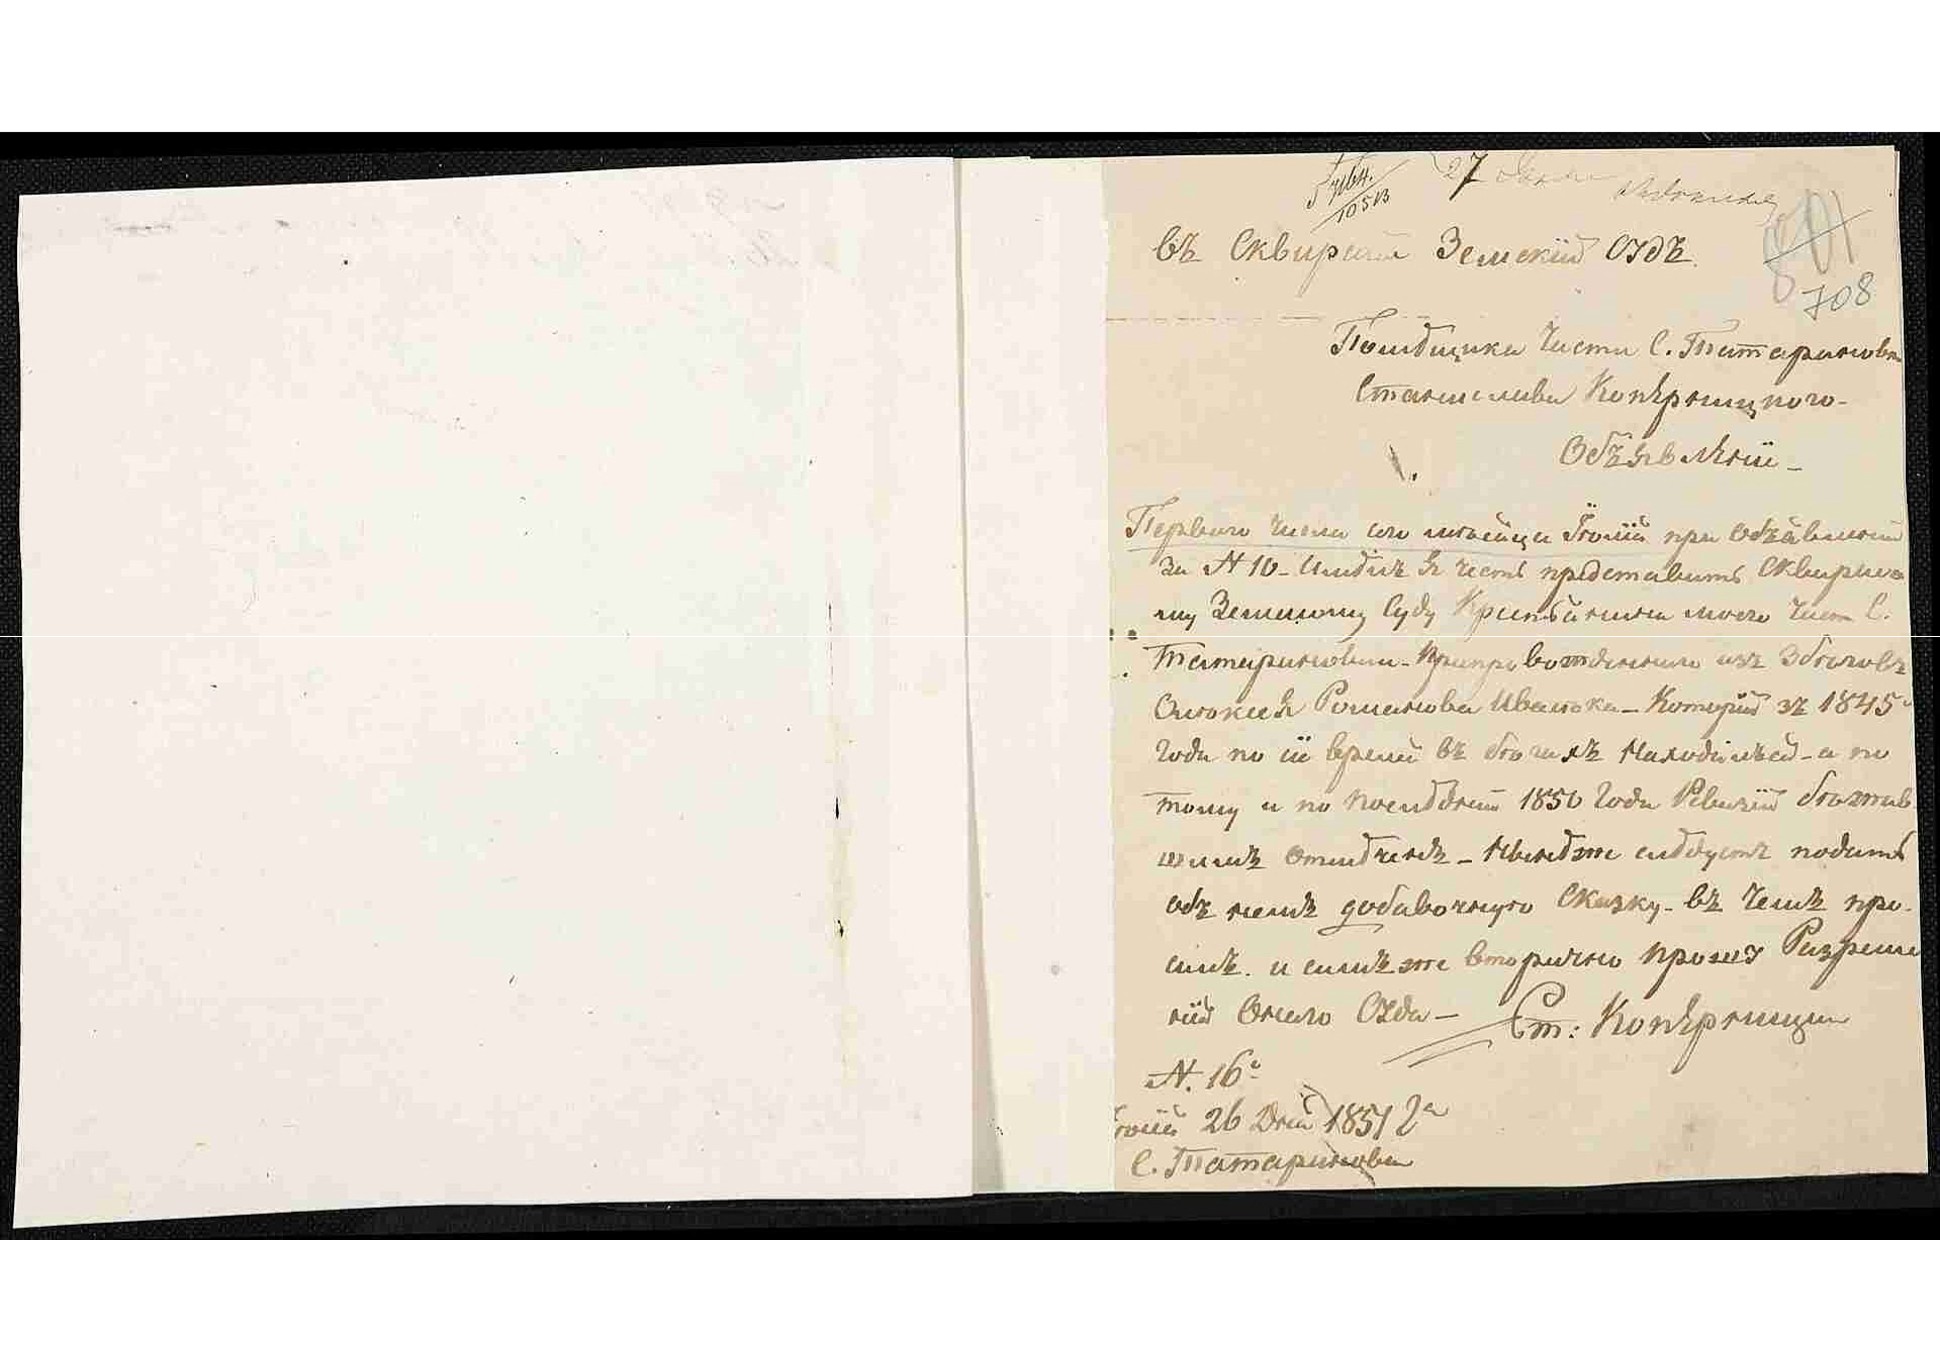 27
10513
801
708
въ Сквирскій Земскій Судъ.
Помѣщика Части С. Татариновки
Станислава Копѣрницкого-
Объявлѣніи –
Первого числа сего мѣсяца Іюнія при объявленіи
за N 10 – имѣлъ я честь прѣдставить Сквирско
му Земскому Суду Крестьянина моего Части С.
Татариновки – припровожденного изъ Збѣговъ
Алѣксѣя Романова Ивалюка – Который зъ 1845
Года по сіи время въ бѣгахъ находилься – а по
тому и по послѣдней 1850 Года Ревизіи бѣжав
шимъ отмѣченъ – Нынѣ же слѣдуетъ подать
объ немъ добавочную Сказку – въ чемъ про-
силъ и симъ же вторично прошу Разреше
нія Оного Суда –
Ст: Копѣрницки
N. 16.
Іюнія 26 Дня 1851 Га
С. Татариновка